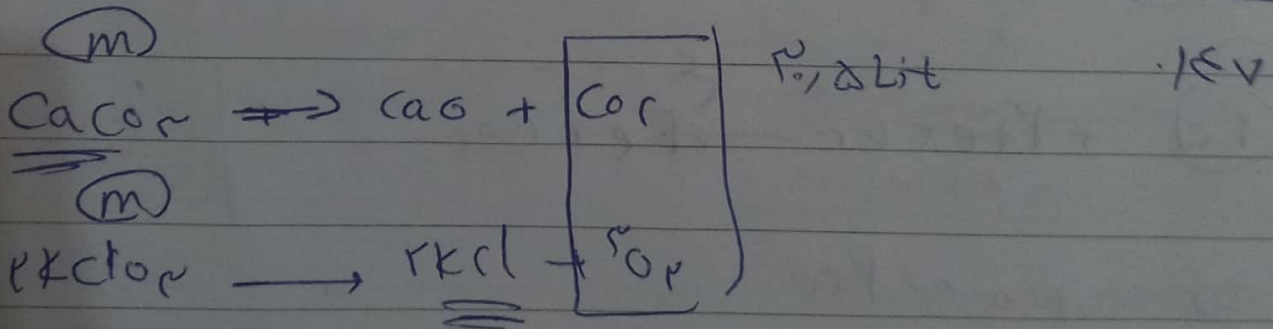 m
CaCO۳ ⇒ CaO + CO۲ ۳۰,۵ Lit .۱۴۷
m
۲KClO۳ → ۲KCl + ۳O۲